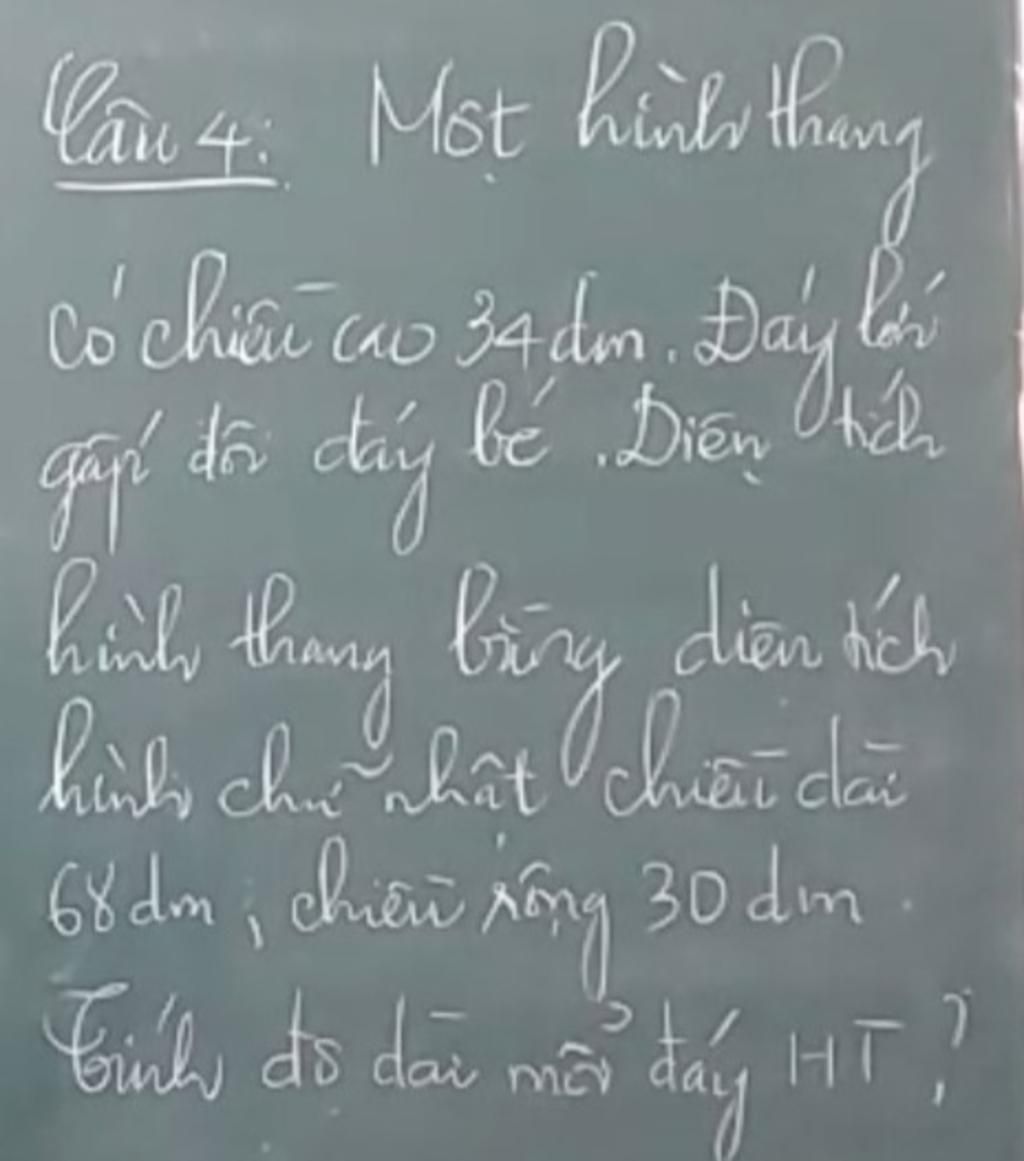 Câu 4: Một hình thang
có chiều cao 34dm. Đáy lớn
gấp đôi đáy bé. Diện tích
hình thang bằng diện tích
hình chữ nhật chiều dài
68dm, chiều rộng 30dm.
Tính độ dài mỗi đáy HT?